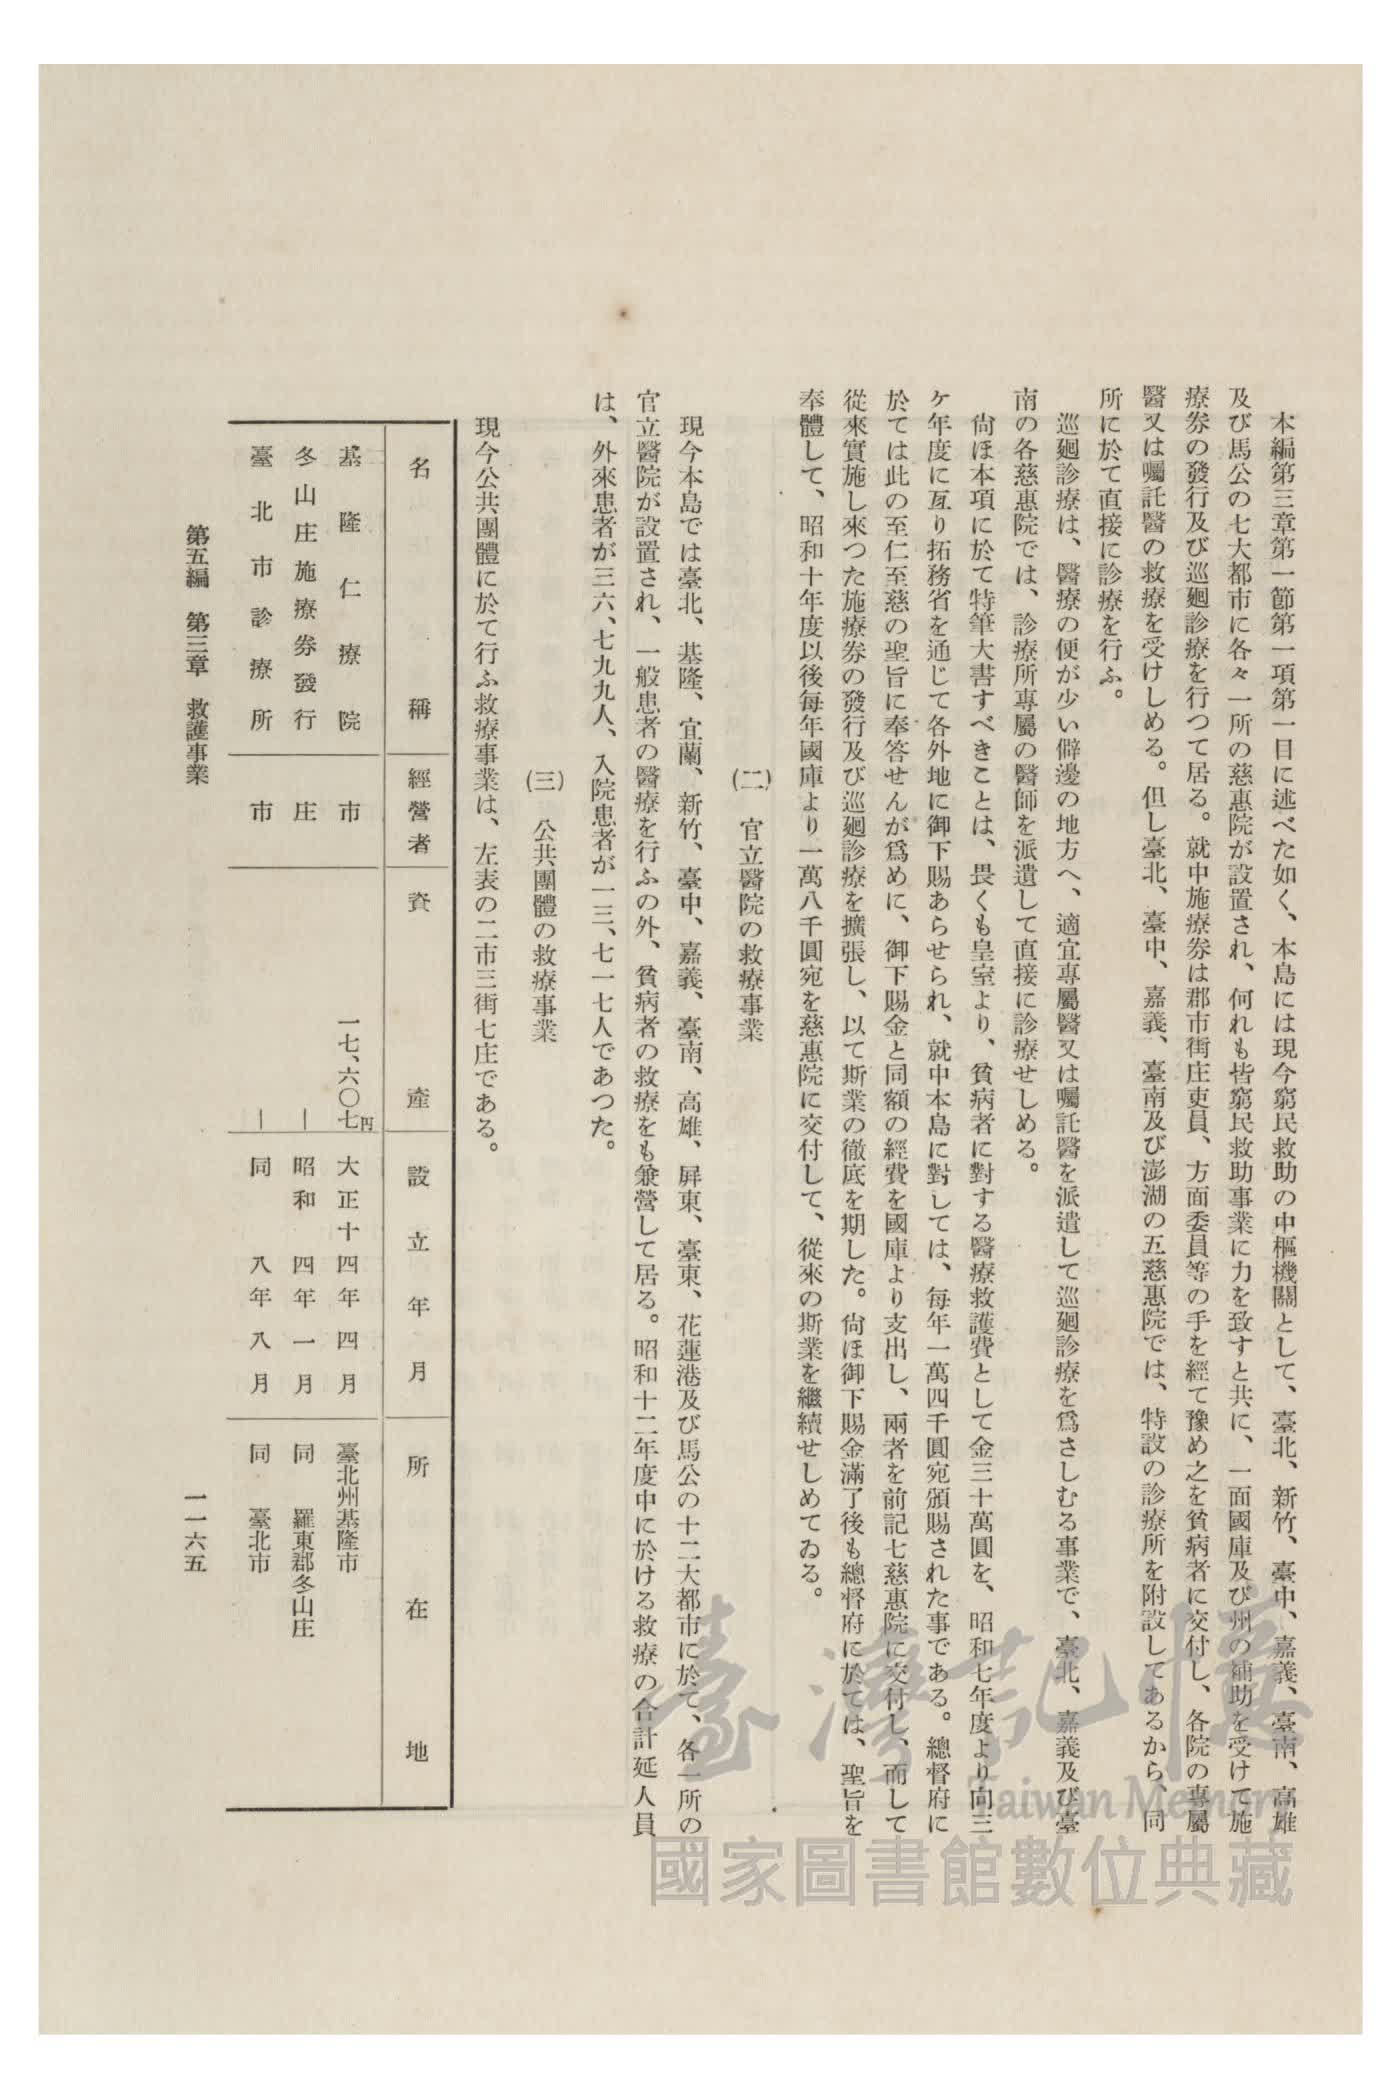 本編第三章第一節第一項第一目に述べた如く、本島には現今窮民救助の中樞機關として、臺北、新竹、臺中、嘉義、臺南、高雄
及び馬公の七大都市に各々一所の慈惠院が設置され、何れも皆窮民救助事業に力を致すと共に、一面國庫及び州の補助を受けて施
療券の發行及び巡廻診療を行つて居る。就中施療券は郡市街庄吏員、方面委員等の手を經て豫め之を貧病者に交付し、各院の專屬
醫又は囑託醫の救療を受けしめる。但し臺北、臺中、嘉義、臺南及び澎湖の五慈惠院では、特設の診療所を附設してあるから、同
所に於て直接に診療を行ふ。
巡廻診療は、醫療の便が少い僻邊の地方へ、適宜專屬醫又は囑託醫を派遣して巡廻診療を爲さしむる事業で、臺北、嘉義及び臺
南の各慈惠院では、診療所專屬の醫師を派遣して直接に診療せしめる。
尙ほ本項に於て特筆大書すべきことは、畏くも皇室より、貧病者に對する醫療救護費として金三十萬圓を、昭和七年度より向三
ケ年度に亙り拓務省を通じて各外地に御下賜あらせられ、就中本島に對しては、每年一萬四千圓宛頒賜された事である。總督府に
於ては此の至仁至慈の聖旨に奉答せんが爲めに、御下賜金と同額の經費を國庫より支出し、兩者を前記七慈惠院に交付し、而して
從來實施し來つた施療券の發行及び巡廻診療を擴張し、以て斯業の徹底を期した。尙ほ御下賜金滿了後も總督府に於ては、聖旨を
奉體して、昭和十年度以後每年國庫より一萬八千圓宛を慈惠院に交付して、從來の斯業を繼續せしめてゐる。
(二) 官立醫院の救療事業
現今本島では臺北、基隆、宜蘭、新竹、臺中、嘉義、臺南、高雄、屛東、臺東、花蓮港及び馬公の十二大都市に於て、各一所の
官立醫院が設置され、一般患者の醫療を行ふの外、貧病者の救療をも兼營して居る。昭和十二年度中に於ける救療の合計延人員
は、外來患者が三六、七九九人、入院患者が一三、七一七人であつた。
(三) 公共團體の救療事業
現今公共團體に於て行ふ救療事業は、左表の二市三街七庄である。
名稱 經營者 資產 設立年月 所在地
基隆仁療院 市 一七、六〇七円 大正十四年四月 臺北州基隆市
冬山庄施療券發行 庄 ― 昭和四年一月 同 羅東郡冬山庄
臺北市診療所 市 ― 同 八年八月 同 臺北市
第五編 第三章 救護事業
一一六五
臺灣記憶
Taiwan Memory
國家圖書館數位典藏